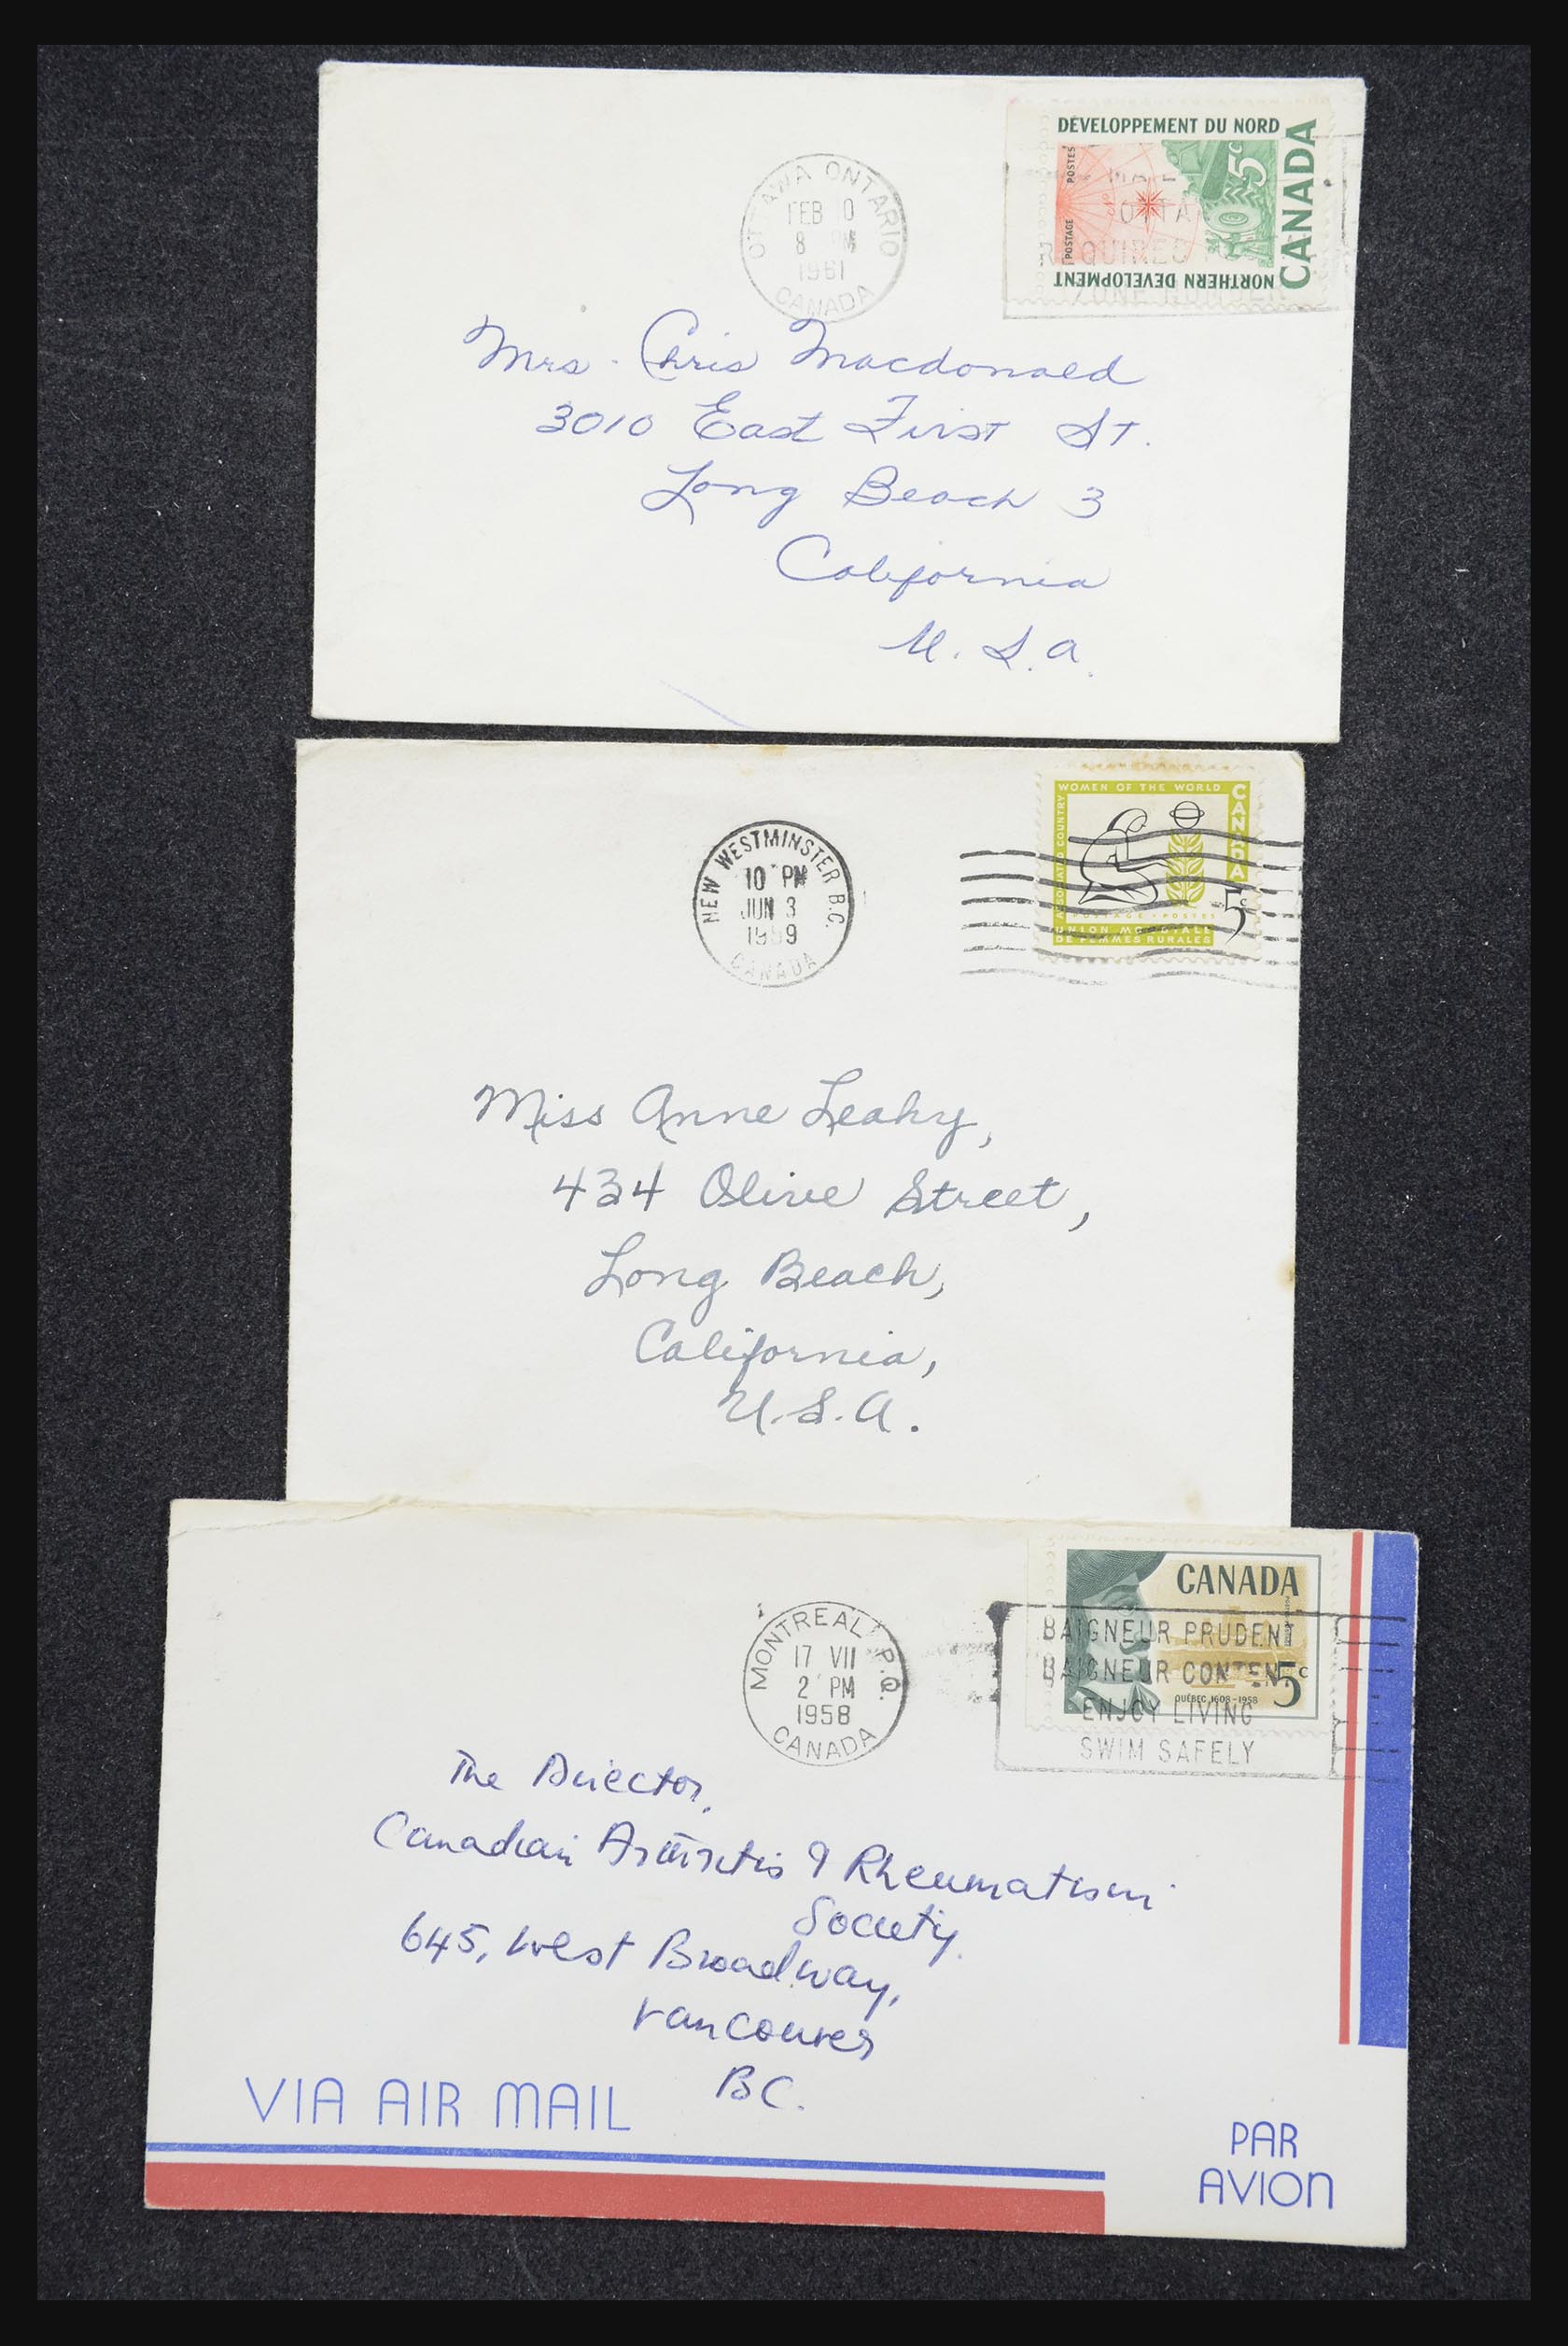 OTTAWA ONTARIO
FEB 0
8 PM
1961
CANADA
DEVELOPPEMENT DU NORD
POSTES
POSTAGE
5c
CANADA
NORTHERN DEVELOPMENT
ZONE NUMBER
Mrs. Chris Macdonald
3010 East First St.
Long Beach 3
California
U.S.A.
NEW WESTMINSTER B.C.
10 PM
JUN 3
1959
CANADA
WOMEN OF THE WORLD
ASSOCIATED COUNTRY
CANADA
5c
POSTAGE · POSTES
UNION MONDIALE
DE FEMMES RURALES
Miss Anne Leahy,
434 Olive Street,
Long Beach,
California,
U.S.A.
MONTREAL P.Q.
17 VII
2 PM
1958
CANADA
CANADA
5c
QUÉBEC 1608-1958
BAIGNEUR PRUDENT
BAIGNEUR CONTENT
ENJOY LIVING
SWIM SAFELY
The Director,
Canadian Arthritis & Rheumatism
Society.
645, West Broadway,
Vancouver
B.C.
VIA AIR MAIL
PAR
AVION